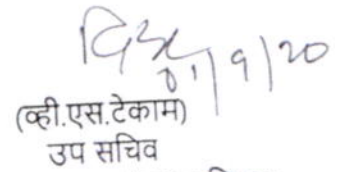 01/9/20
(व्ही.एस.टेकाम)
उप सचिव